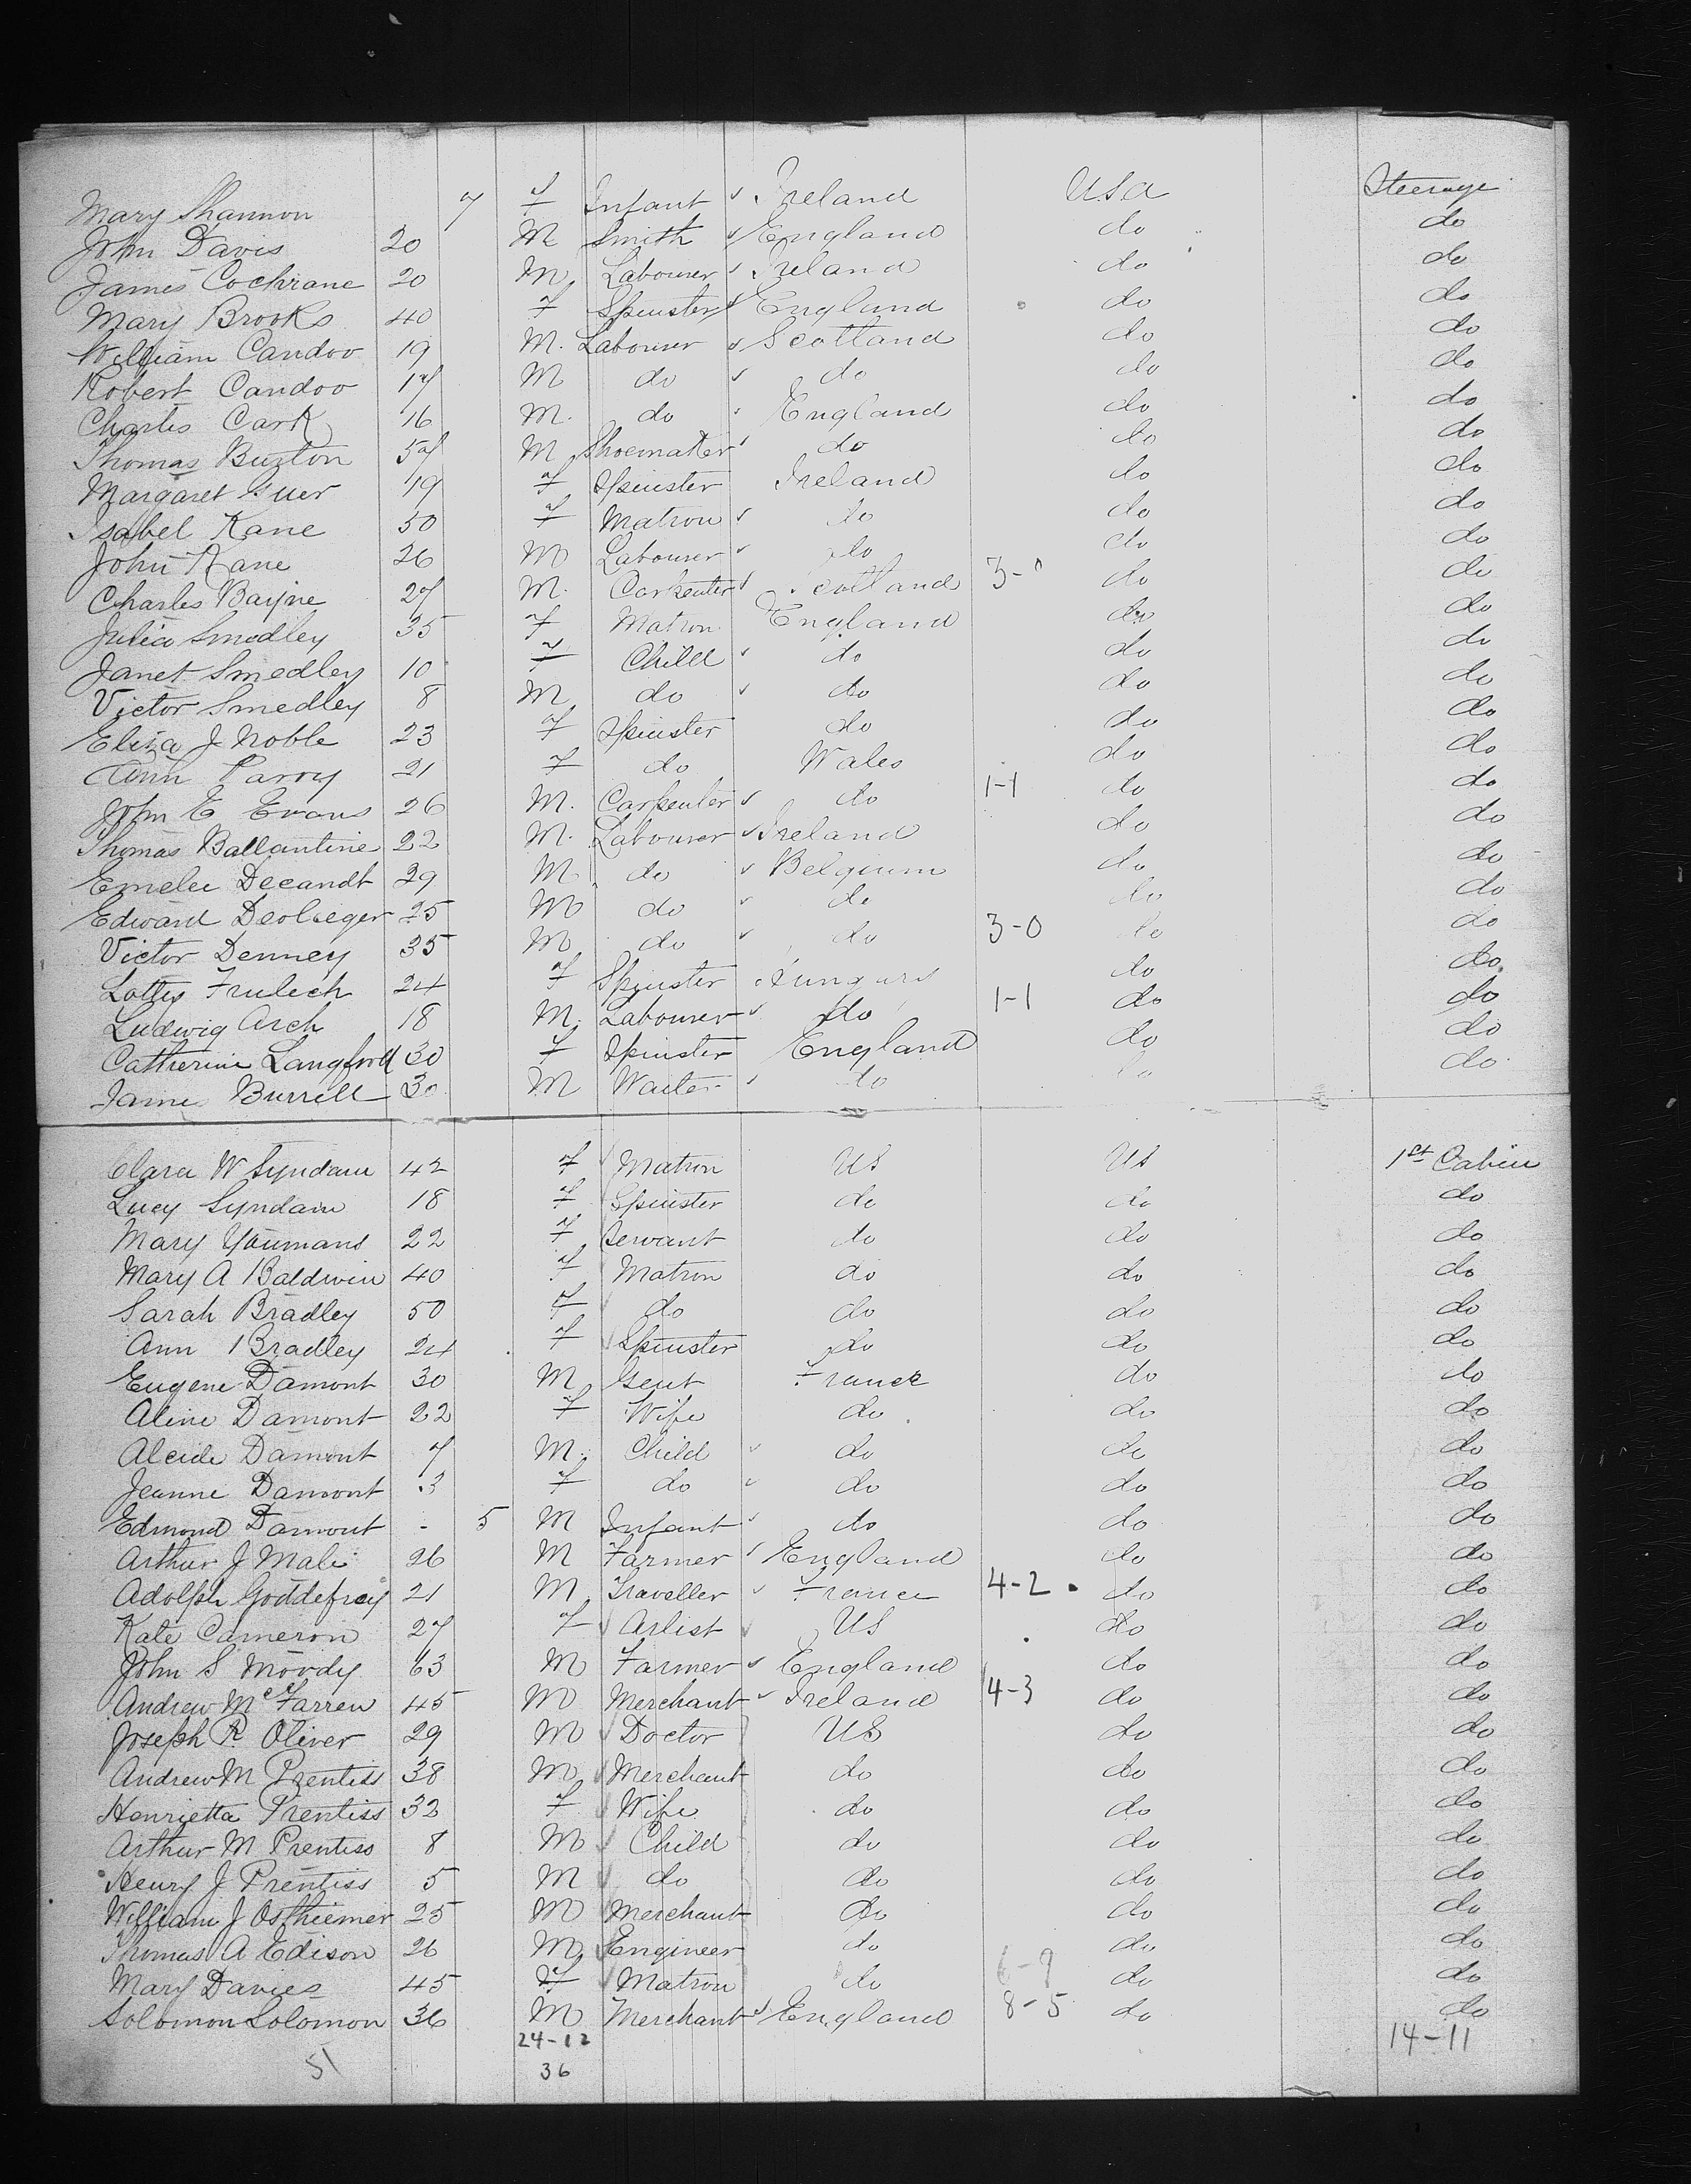 Mary Shannon 7 F Infant Ireland USA Steerage
John Davis 20 M Smith England do do
James Cochrane 20 M Labourer Ireland do do
Mary Brooks 40 F Spinster England do do
William Candoo 19 M. Labourer Scotland do do
Robert Candoo 17 M do do do do
Charles Cark 16 M. do England do do
Thomas Buxton 57 M Shoemaker do do do
Margaret 19 F Spinster Ireland do do
Isabel Kane 50 F Matron do do do
John Kane 26 M Labourer do do do
Charles Bayne 27 M. Carpenter Scotland 3-0 do do
Julia Smedley 35 F Matron England do do
Janet Smedley 10 F Child do do do
Victor Smedley 8 M do do do do
Eliza J Noble 23 F Spinster do do do
Ann Parry 21 F do Wales do do
John E Evans 26 M. Carpenter do 1-1 do do
Thomas Ballantine 22 M. Labourer Ireland do do
Emelee Decandt 29 M do Belgium do do
Edward 25 M do do do do
Victor Denney 35 M do do 3-0 do do
Lottey Frulech 24 F Spinster do do
Ludwig Arch 18 M. Labourer do 1-1 do do
Catherine Langford 30 F Spinster England do do
James Burrell 30 M Waiter do do do
Clara W Syndam 42 F Matron US US 1st Cabin
Lucy Syndam 18 F Spinster do do do
Mary Youmans 22 F Servant do do do
Mary A Baldwin 40 F Matron do do do
Sarah Bradley 50 F do do do do
Ann Bradley 24 F Spinster do do do
Eugene Damont 30 M Gent France do do
Aline Damont 22 F Wife do do do
Alcide Damont 7 M. Child do do do
Jeanne Damont 3 F do do do do
Edmond Damont - 5 M Infant do do do
Arthur J Male 26 M Farmer England do do
Adolph Goddefroy 21 M Traveller France 4-2 do do
Kate Cameron 27 F Artist US do do
John S Moody 63 M Farmer England do do
Andrew McFarren 45 M Merchant Ireland 4-3 do do
Joseph R Oliver 29 M Doctor US do do
Andrew M Prentiss 38 M Merchant do do do
Henrietta Prentiss 32 F Wife do do do
Arthur M Prentiss 8 M Child do do do
Henry J Prentiss 5 M do do do do
William J Ostheimer 25 M Merchant do do do
Thomas A Edison 26 M Engineer do do do
Mary Davies 45 F Matron do 6-9 do do
Solomon Solomon 36 M Merchant England 8-5 do do
51 24-12 14-11
36